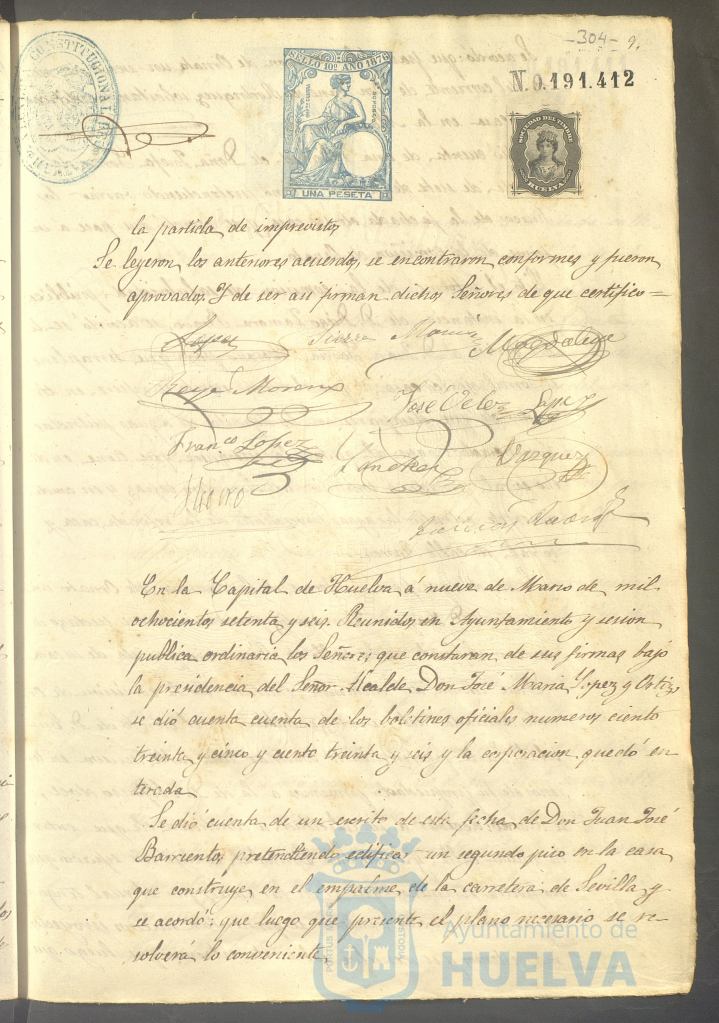 -304- 9.
CONSTITUCIONAL
SELLO 10º AÑO 1876
UNA PESETA
N.0.191.412
SOCIEDAD DEL TIMBRE
HUELVA
la partida de imprevistos
Se leyeron los anteriores acuerdos, se encontraron conformes y fueron
aprovados. Y de ser asi firman dichos Señores de que certifico=
Lopez
Magdalena
Moreno
José Velez
Lopez
Franco Lopez
Vazquez
En la Capital de Huelva á nueve de Marzo de mil
ochocientos setenta y seis. Reunidos en Ayuntamiento y sesion
publica ordinaria los Señores que constaran de sus firmas bajo
la presidencia del Señor Alcalde Don José Maria Lopez y Ortiz
se dió cuenta cuenta de los boletines oficiales numeros ciento
treinta y cinco y ciento treinta y seis y la corporacion quedó en
terada
Se dió cuenta de un escrito de esta fecha de Don Juan José
Barriento, pretendiendo edificar un segundo piso en la casa
que construye en el empalme de la carretera de Sevilla y
se acordó: que luego que presente el plano necesario se re-
solverá lo conveniente
Ayuntamiento de
HUELVA